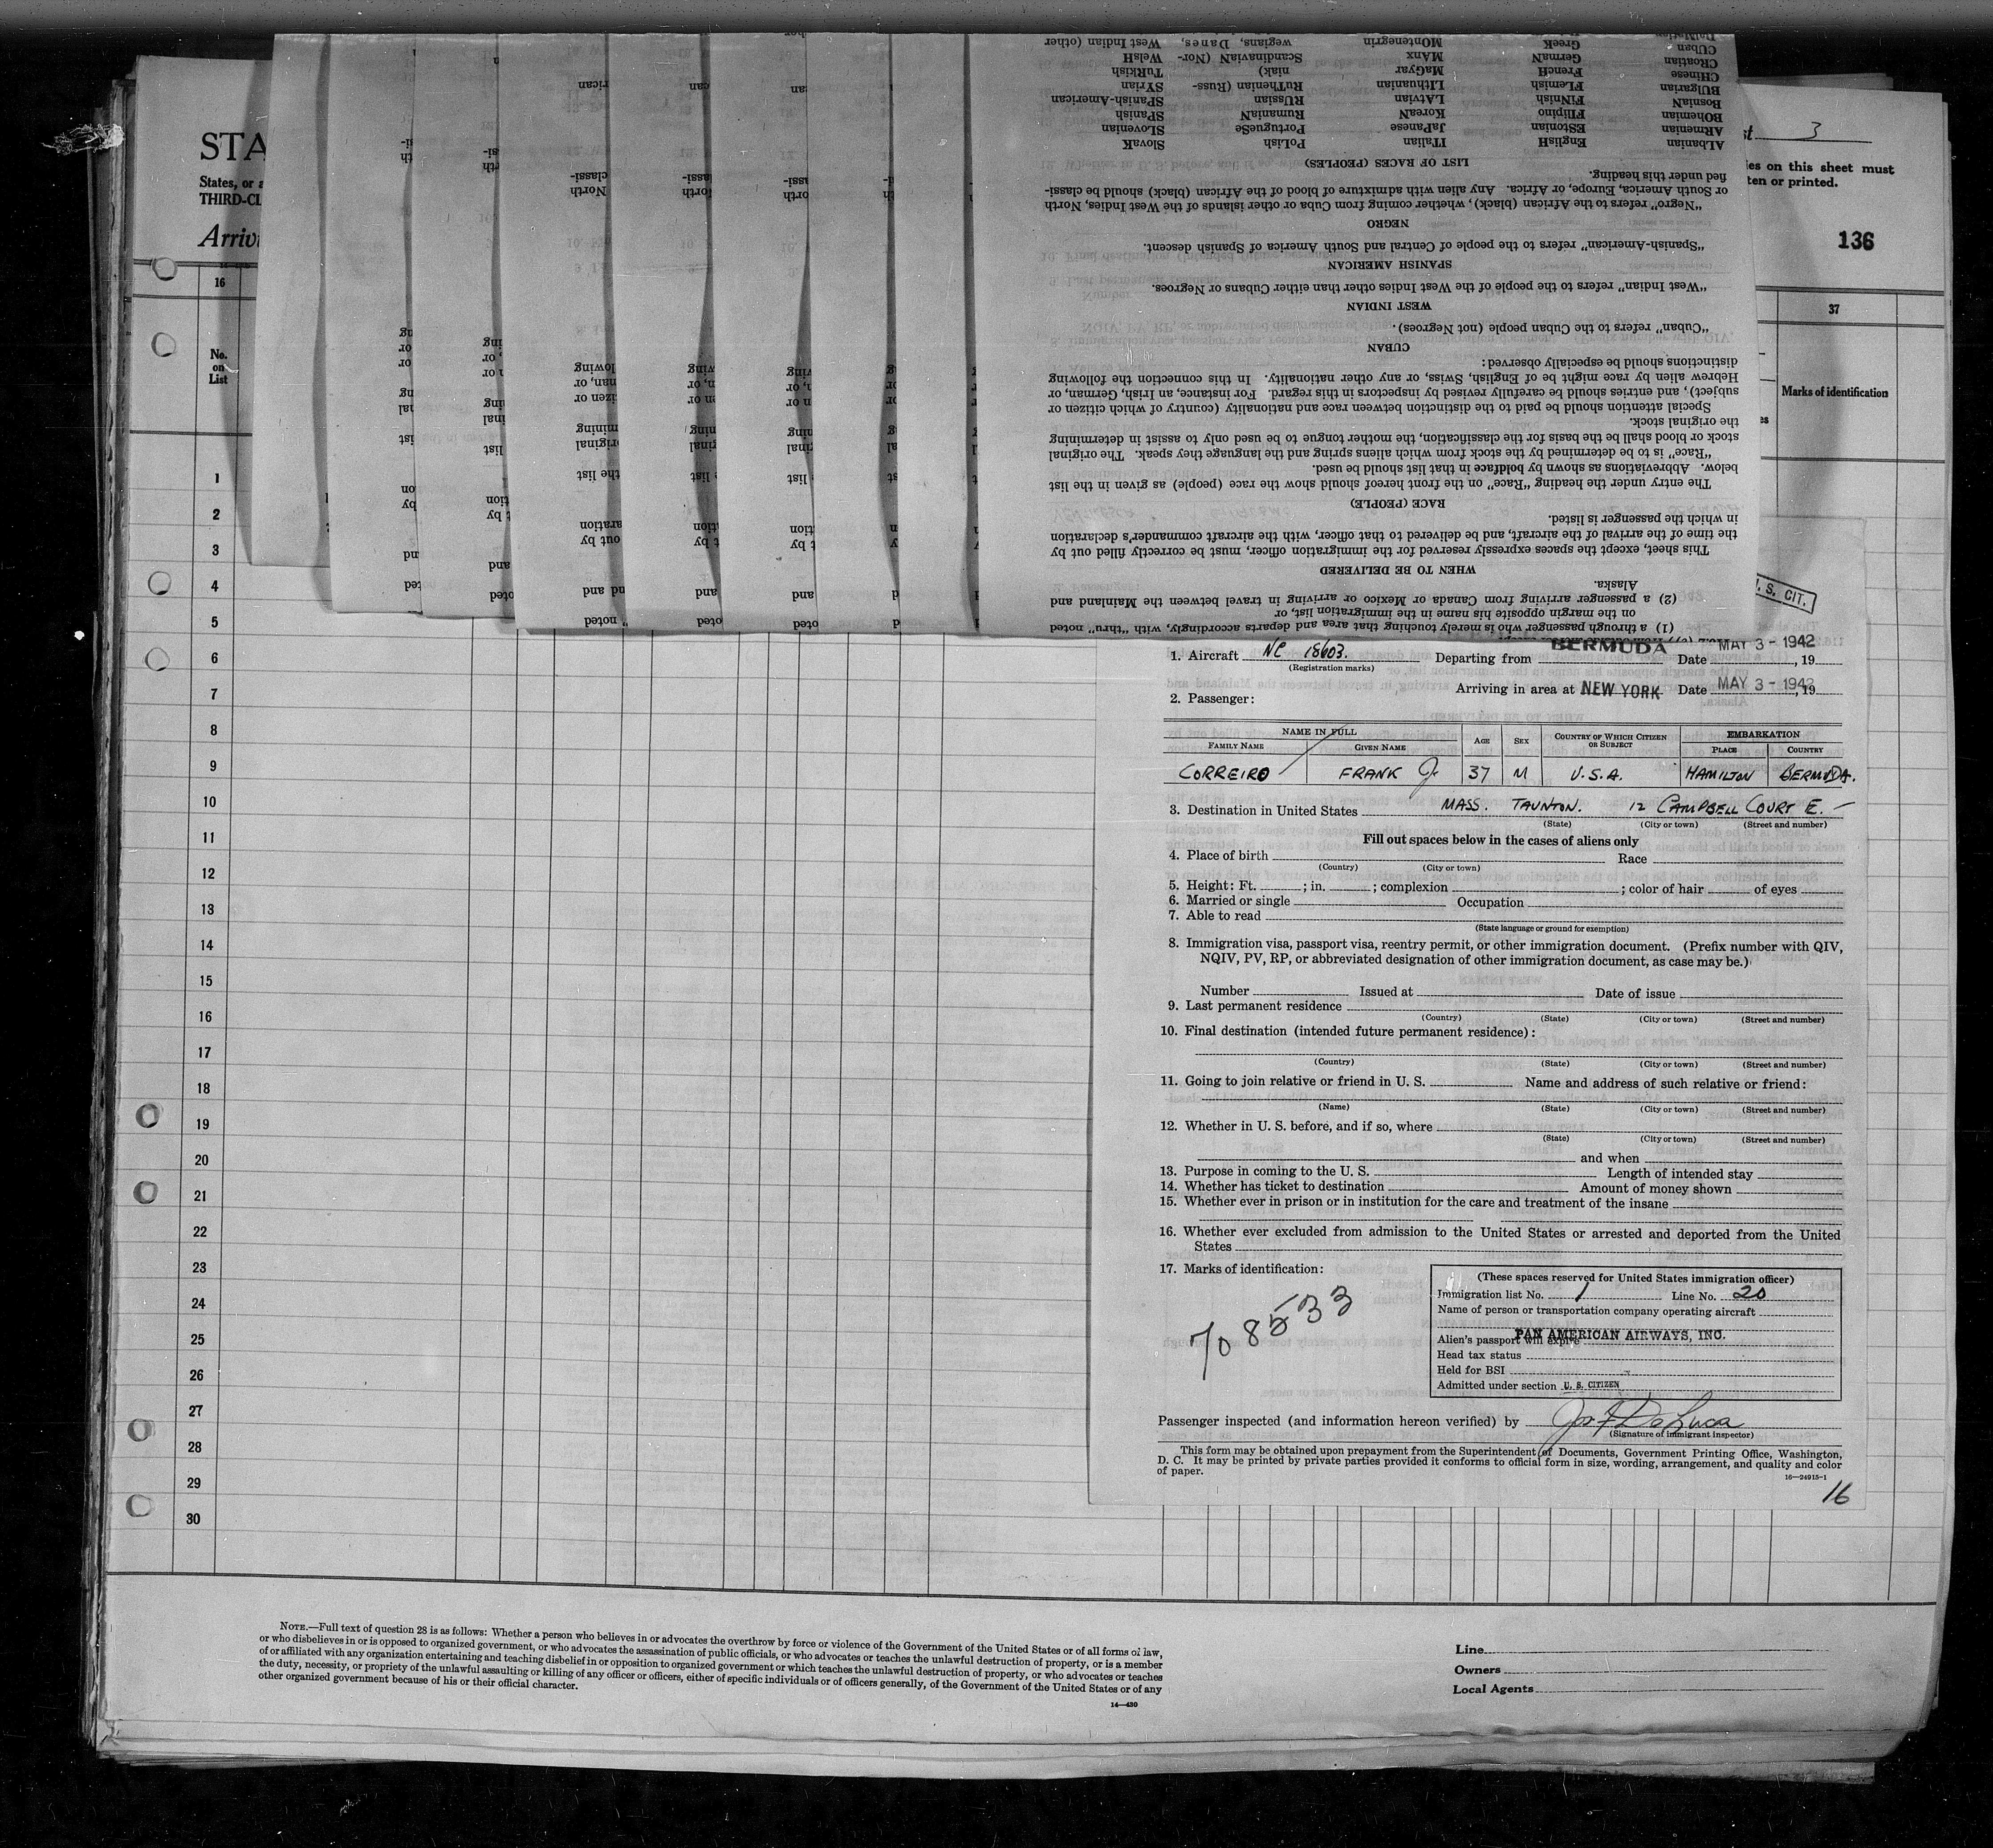 STA
States, or a
THIRD-CL
Arrivi
st 3
ies on this sheet must
ten or printed.
136
16
37
No.
on
List
Marks of identification
1
2
3
4
5
6
7
8
9
10
11
12
13
14
15
16
17
18
19
20
21
22
23
24
25
26
27
28
29
30
(1) a through passenger who is merely touching that area and departs accordingly, with "thru" noted
on the margin opposite his name in the immigration list, or
(2) a passenger arriving from Canada or Mexico or arriving in travel between the Mainland and
Alaska.
WHEN TO BE DELIVERED
This sheet, except the spaces expressly reserved for the immigration officer, must be correctly filled out by
the time of the arrival of the aircraft, and be delivered to that officer, with the aircraft commander's declaration
in which the passenger is listed.
RACE (PEOPLE)
The entry under the heading "Race" on the front hereof should show the race (people) as given in the list
below. Abbreviations as shown by boldface in that list should be used.
"Race" is to be determined by the stock from which aliens spring and the language they speak. The original
stock or blood shall be the basis for the classification, the mother tongue to be used only to assist in determining
the original stock.
Special attention should be paid to the distinction between race and nationality (country of which citizen or
subject), and entries should be carefully revised by inspectors in this regard. For instance, an Irish, German, or
Hebrew alien by race might be of English, Swiss, or any other nationality. In this connection the following
distinctions should be especially observed:
CUBAN
"Cuban" refers to the Cuban people (not Negroes).
WEST INDIAN
"West Indian" refers to the people of the West Indies other than either Cubans or Negroes.
SPANISH AMERICAN
"Spanish-American" refers to the people of Central and South America of Spanish descent.
NEGRO
"Negro" refers to the African (black), whether coming from Cuba or other islands of the West Indies, North
or South America, Europe, or Africa. Any alien with admixture of blood of the African (black) should be classi-
fied under this heading.
LIST OF RACES (PEOPLES)
AlBanian EnglisH ITalian PoLish SlovaK
ARmenian EStonian JaPanese PortugueSe SLovenian
BOhemian FIlipino KoreaN RumaniaN SPanish
BosniaN FINnish LAtvian RUssian SPanish-American
BUlgarian FLemish LIthuanian RuThenian (Russ- SYrian
CHinese FrencH MaGyar niak) TuRkish
CRoatian GermaN MAnx ScandinaviaN (Nor- WelsH
CUban GreeK MOntenegrin wegians, Danes, West Indian (other
U. S. CIT.
1. Aircraft NC 18603. Departing from BERMUDA Date MAY 3 - 1942, 19
(Registration marks)
Arriving in area at NEW YORK Date MAY 3 - 1942, 19
2. Passenger:
NAME IN FULL
FAMILY NAME GIVEN NAME AGE SEX COUNTRY OF WHICH CITIZEN OR SUBJECT EMBARKATION
PLACE COUNTRY
CORREIRO FRANK J. 37 M U.S.A. HAMILTON BERMUDA.
3. Destination in United States MASS. TAUNTON. 12 CAMPBELL COURT E. —
(State) (City or town) (Street and number)
Fill out spaces below in the cases of aliens only
4. Place of birth Race
(Country) (City or town)
5. Height: Ft. ; in. ; complexion ; color of hair of eyes
6. Married or single Occupation
7. Able to read
(State language or ground for exemption)
8. Immigration visa, passport visa, reentry permit, or other immigration document. (Prefix number with QIV,
NQIV, PV, RP, or abbreviated designation of other immigration document, as case may be.)
Number Issued at Date of issue
9. Last permanent residence
(Country) (State) (City or town) (Street and number)
10. Final destination (intended future permanent residence):
(Country) (State) (City or town) (Street and number)
11. Going to join relative or friend in U. S. Name and address of such relative or friend:
(Name) (State) (City or town) (Street and number)
12. Whether in U. S. before, and if so, where
(State) (City or town) (Street and number)
and when
13. Purpose in coming to the U. S. Length of intended stay
14. Whether has ticket to destination Amount of money shown
15. Whether ever in prison or in institution for the care and treatment of the insane
16. Whether ever excluded from admission to the United States or arrested and deported from the United
States
17. Marks of identification:
708533
(These spaces reserved for United States immigration officer)
Immigration list No. 1 Line No. 20
Name of person or transportation company operating aircraft
PAN AMERICAN AIRWAYS, INC.
Alien's passport will expire
Head tax status
Held for BSI
Admitted under section U. S. CITIZEN
Passenger inspected (and information hereon verified) by Jos F De Luca
(Signature of immigrant inspector)
This form may be obtained upon prepayment from the Superintendent of Documents, Government Printing Office, Washington,
D. C. It may be printed by private parties provided it conforms to official form in size, wording, arrangement, and quality and color
of paper.
16—24915-1
16
NOTE.—Full text of question 28 is as follows: Whether a person who believes in or advocates the overthrow by force or violence of the Government of the United States or of all forms of law,
or who disbelieves in or is opposed to organized government, or who advocates the assassination of public officials, or who advocates or teaches the unlawful destruction of property, or is a member
of or affiliated with any organization entertaining and teaching disbelief in or opposition to organized government or which teaches the unlawful destruction of property, or who advocates or teaches
the duty, necessity, or propriety of the unlawful assaulting or killing of any officer or officers, either of specific individuals or of officers generally, of the Government of the United States or of any
other organized government because of his or their official character.
14—430
Line
Owners
Local Agents